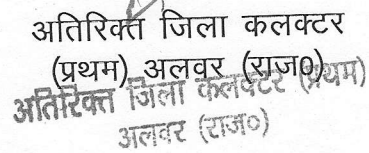 अतिरिक्त जिला कलक्टर
(प्रथम) अलवर (राज०)
अतिरिक्त जिला कलक्टर (प्रथम)
अलवर (राज०)